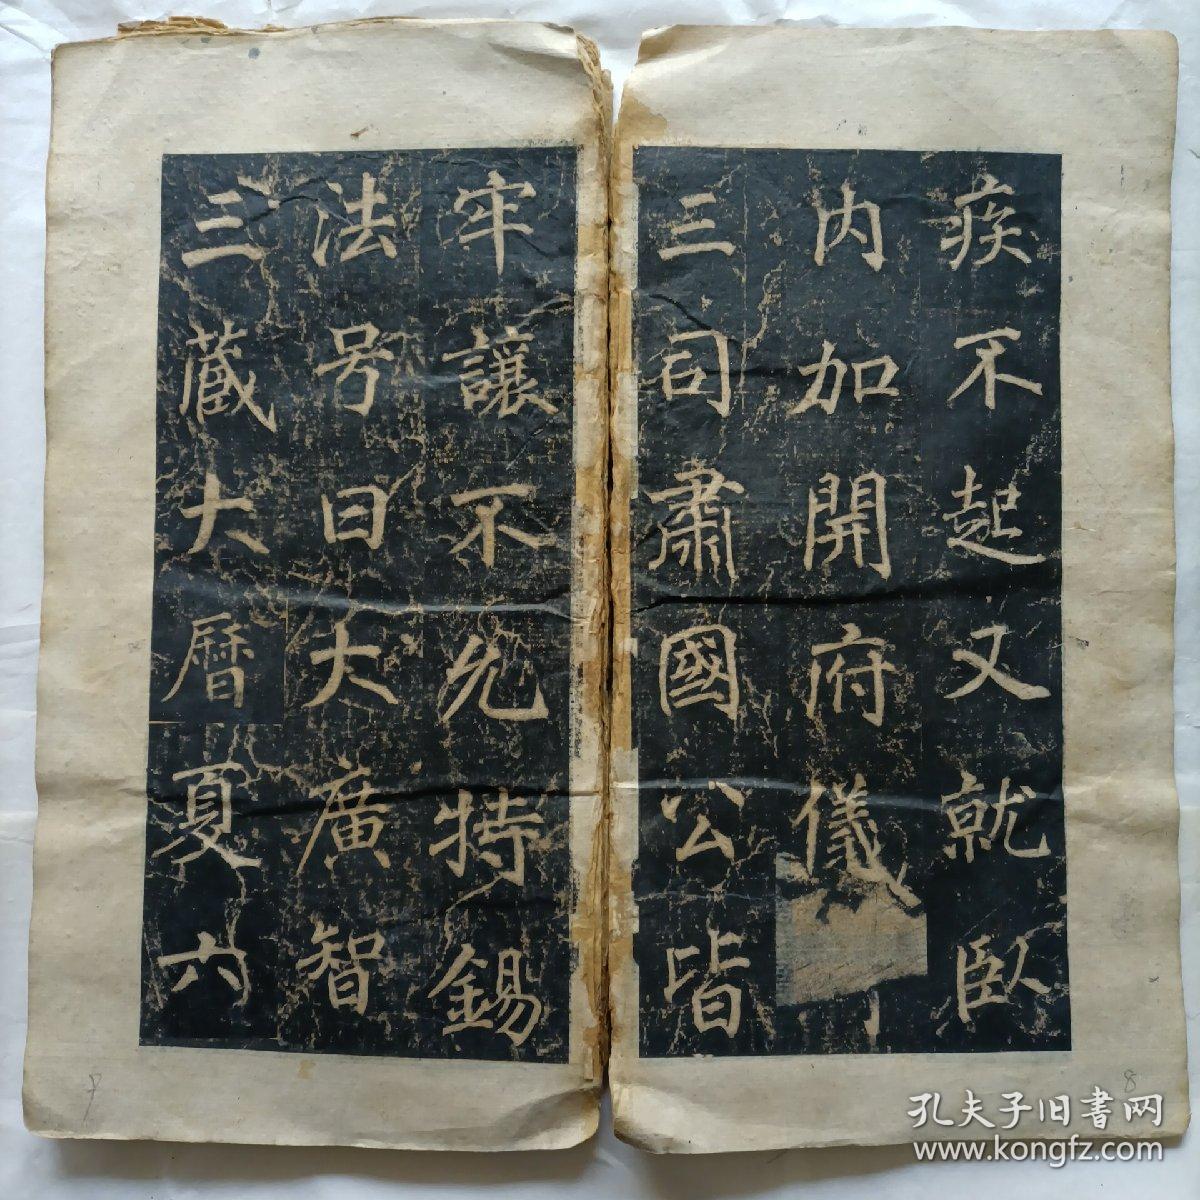 疾不起又就臥
内加開府儀
三司肅國公皆
牢讓不允特錫
法号曰大廣智
三藏大曆夏六
8
9
孔夫子旧書网
www.kongfz.com